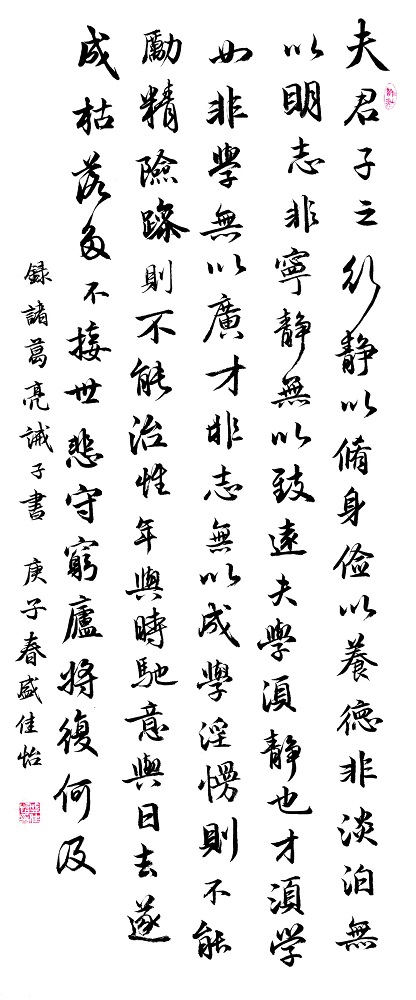 夫君子之行靜以脩身儉以養德非淡泊無
以明志非寧靜無以致遠夫學須靜也才須學
也非學無以廣才非志無以成學淫慢則不能
勵精險躁則不能治性年與時馳意與日去遂
成枯落多不接世悲守窮廬將復何及
録諸葛亮誡子書 庚子春盛佳怡